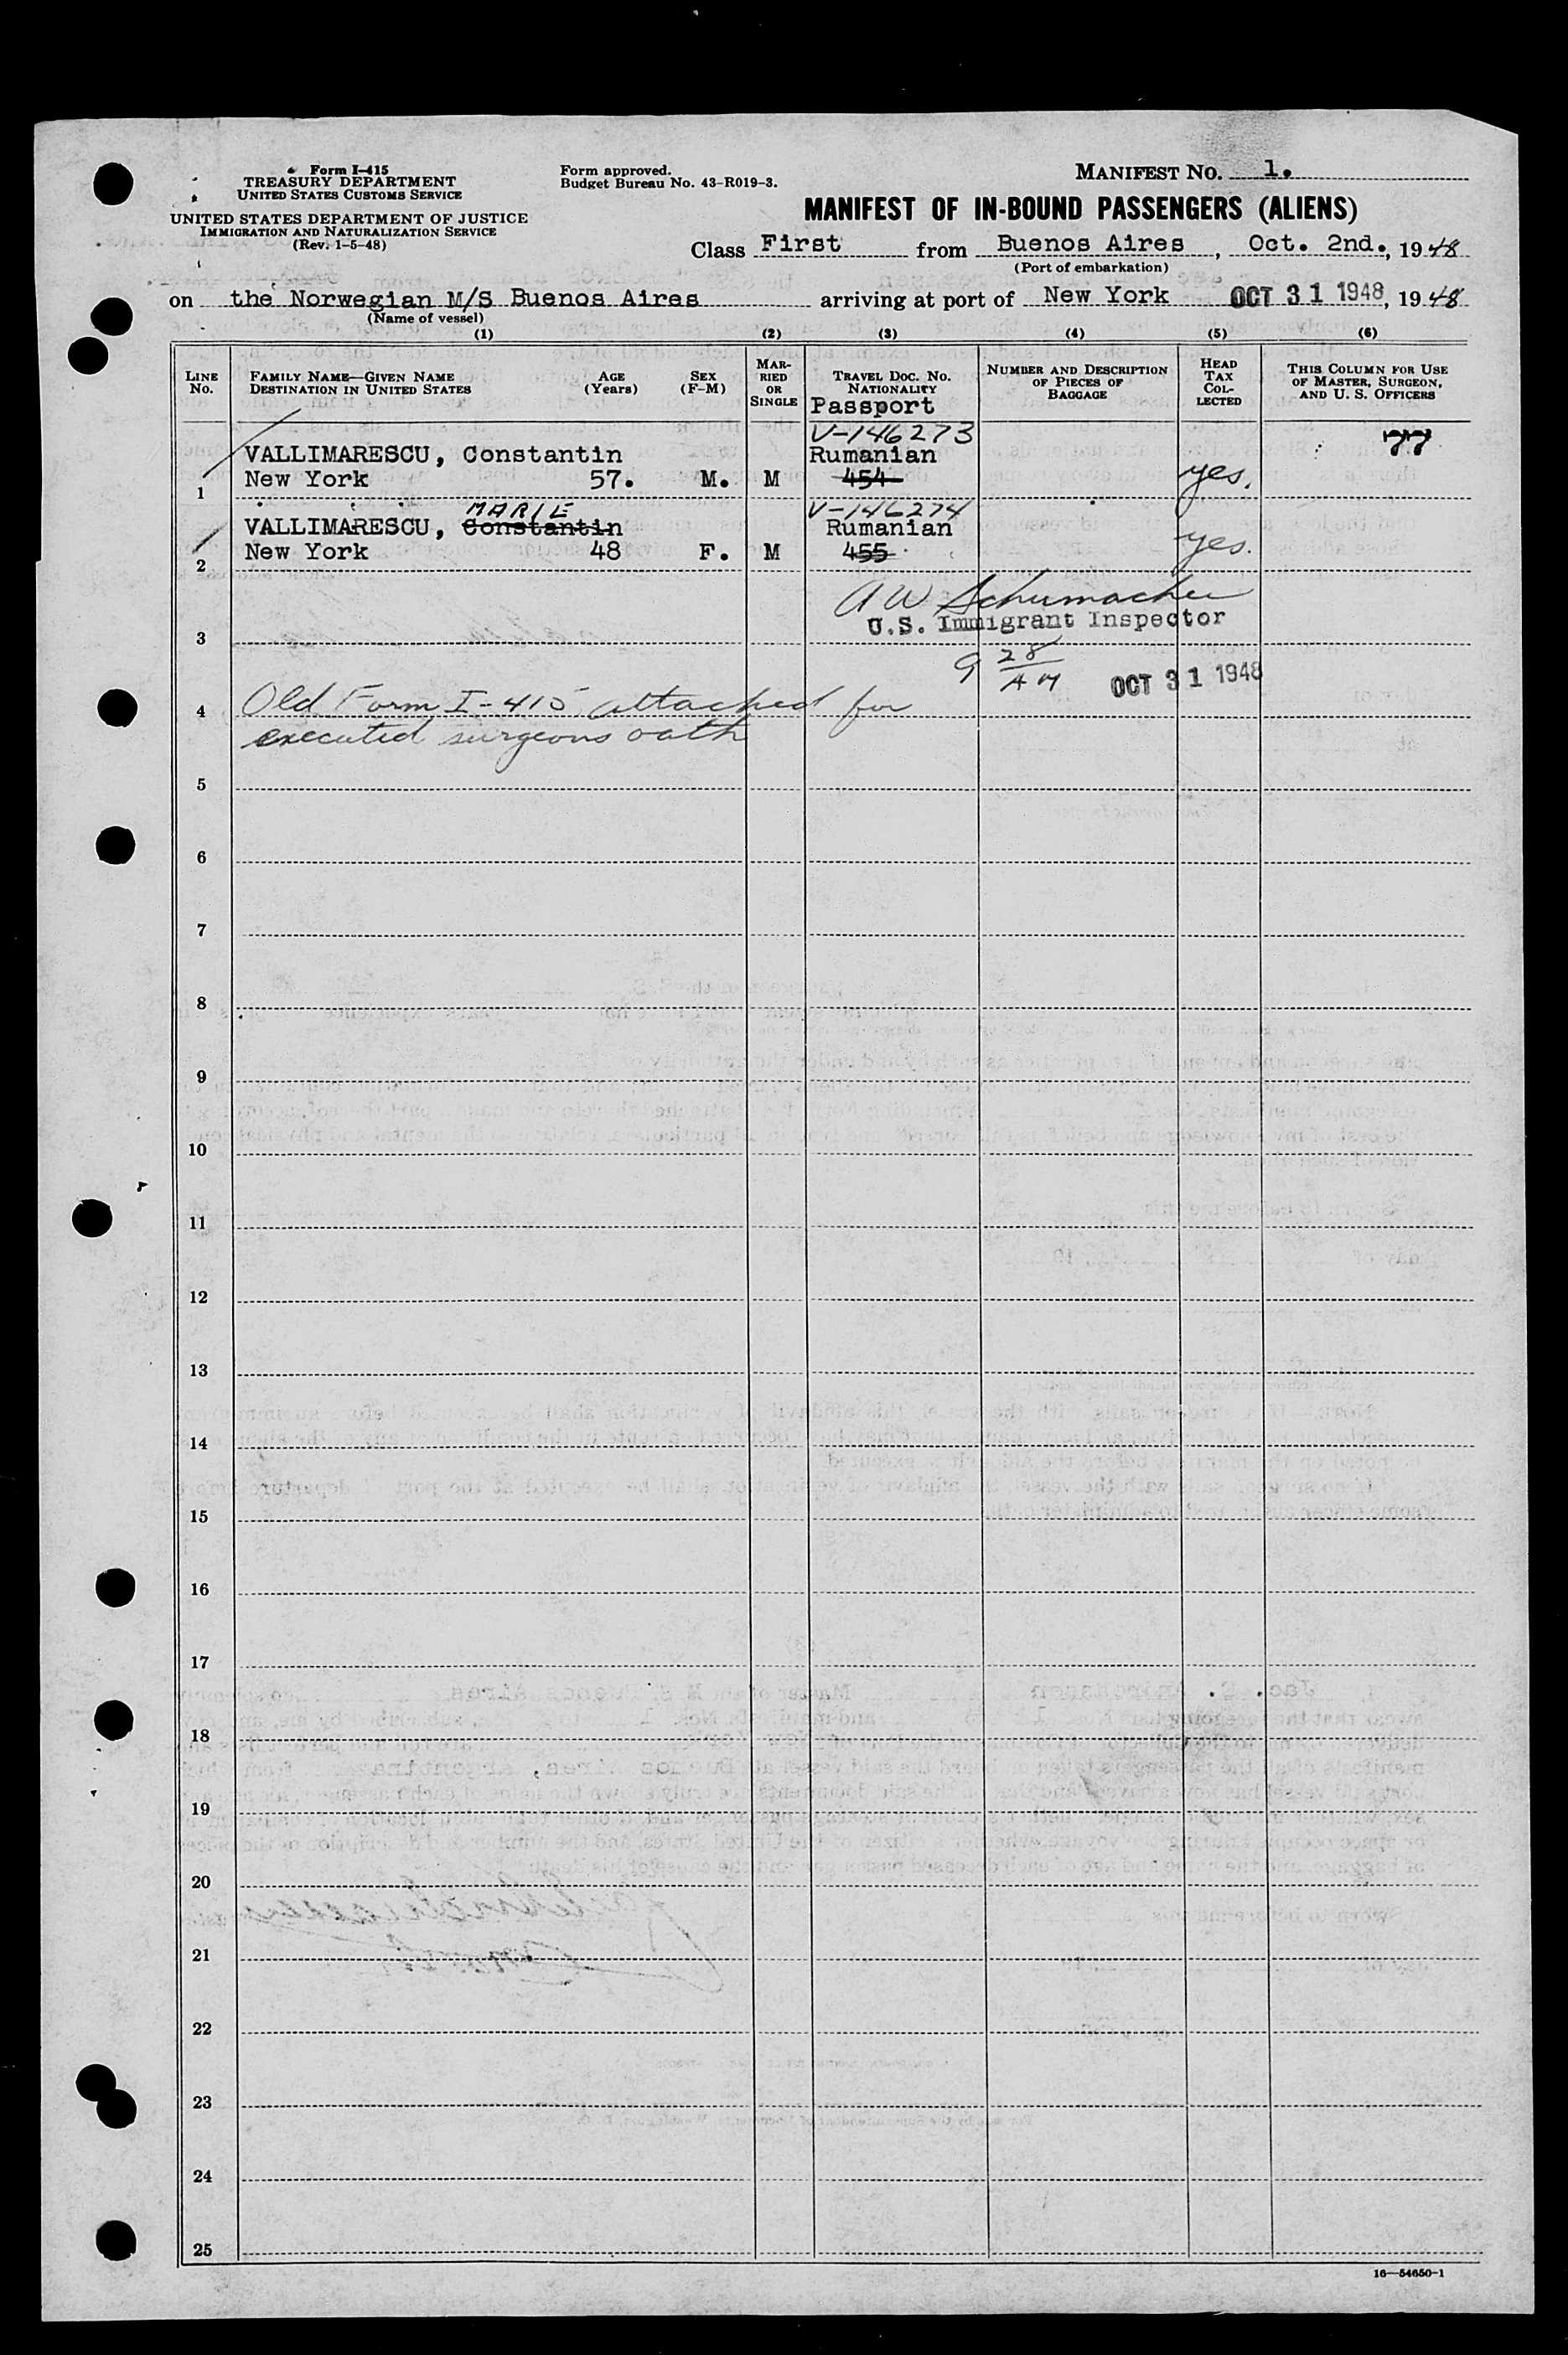 Form I-415
TREASURY DEPARTMENT
UNITED STATES CUSTOMS SERVICE
UNITED STATES DEPARTMENT OF JUSTICE
IMMIGRATION AND NATURALIZATION SERVICE
(Rev. 1-5-48)
Form approved.
Budget Bureau No. 43-R019-3.
MANIFEST NO. 1.
MANIFEST OF IN-BOUND PASSENGERS (ALIENS)
Class First from Buenos Aires, Oct. 2nd., 1948
(Port of embarkation)
on the Norwegian M/S Buenos Aires arriving at port of New York OCT 31 1948, 1948
(Name of vessel)
(1) (2) (3) (4) (5) (6)
LINE NO.
FAMILY NAME—GIVEN NAME
DESTINATION IN UNITED STATES
AGE (Years)
SEX (F-M)
MARRIED OR SINGLE
TRAVEL DOC. NO.
NATIONALITY
Passport
NUMBER AND DESCRIPTION OF PIECES OF BAGGAGE
HEAD TAX COLLECTED
THIS COLUMN FOR USE OF MASTER, SURGEON, AND U. S. OFFICERS
V-146273
VALLIMARESCU, Constantin Rumanian 77
1 New York 57. M. M 454 yes.
MARIE V-146274
VALLIMARESCU, Constantin Rumanian
2 New York 48 F. M 455 yes.
A W Schumacher
U.S. Immigrant Inspector
3
9 28 AM OCT 31 1948
4 Old Form I-415 attached for
executed surgeons oath
5
6
7
8
9
10
11
12
13
14
15
16
17
18
19
20
21
22
23
24
25
16—54650-1